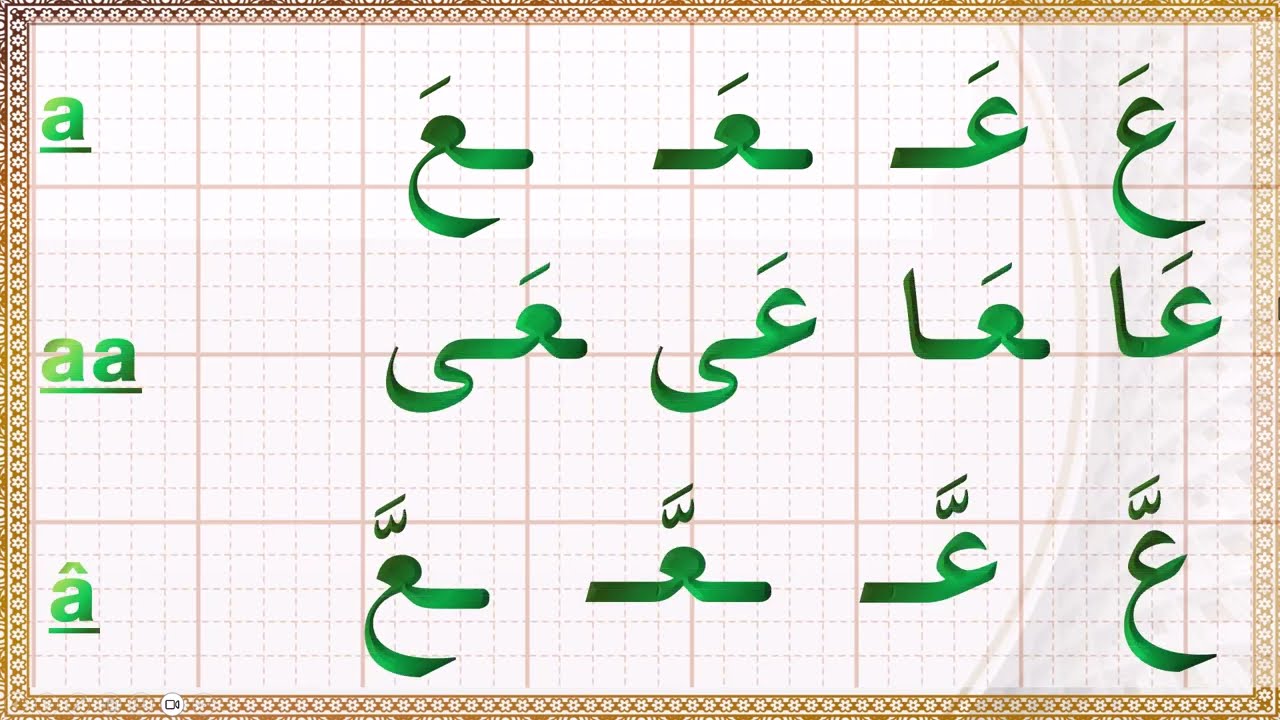 عَ عَـ ـعَـ ـعَ a
عَا ـعَا عَى ـعَى aa
عَّ عَّـ ـعَّـ ـعَّ â